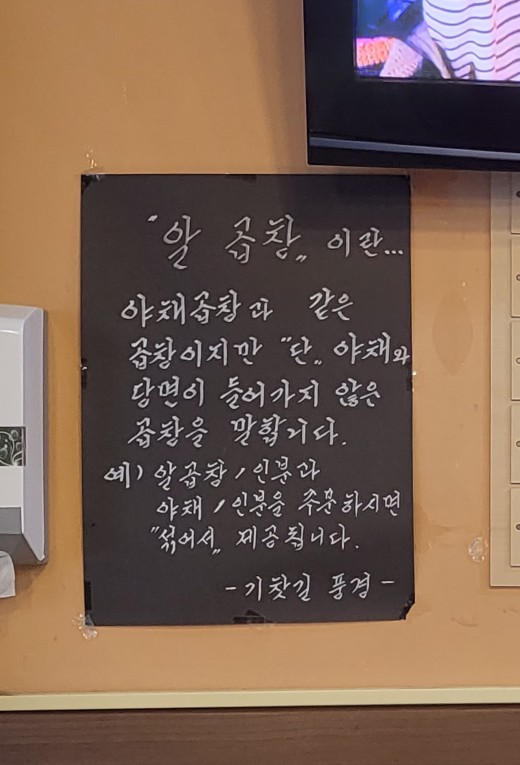 "알 곱창" 이란...
야채곱창과 같은
곱창이지만 "단" 야채와
당면이 들어가지 않은
곱창을 말합니다.
예) 알곱창 1인분과
야채 1인분을 주문하시면
"섞어서" 제공됩니다.
- 기찻길 풍경 -